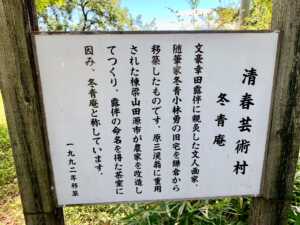 清春芸術村
冬青庵
文豪幸田露伴に親炙した文人画家、
随筆家冬青小林勇の旧宅を鎌倉から
移築したものです。原三渓翁に重用
された棟梁山田源市が農家を改造し
てつくり、露伴の命名を得た茶室に
因み、冬青庵と称しています。
一九九二年移築